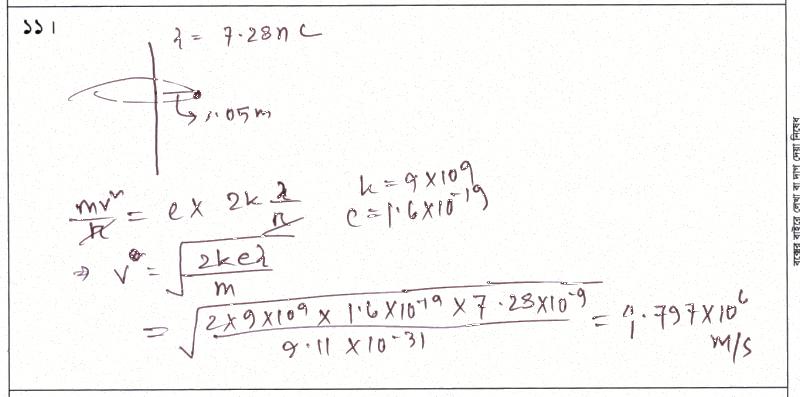 ১১।
λ = 7.28 n C
→ 1.05m
mv²/r = e × 2k λ/r
k = 9 × 10⁹
e = 1.6 × 10⁻¹⁹
⇒ v = √(2keλ/m)
= √(2 × 9 × 10⁹ × 1.6 × 10⁻¹⁹ × 7.28 × 10⁻⁹ / 9.11 × 10⁻³¹) = 4.797 × 10⁶ m/s
বক্সের বাইরে লেখা বা দাগ দেয়া নিষেধ